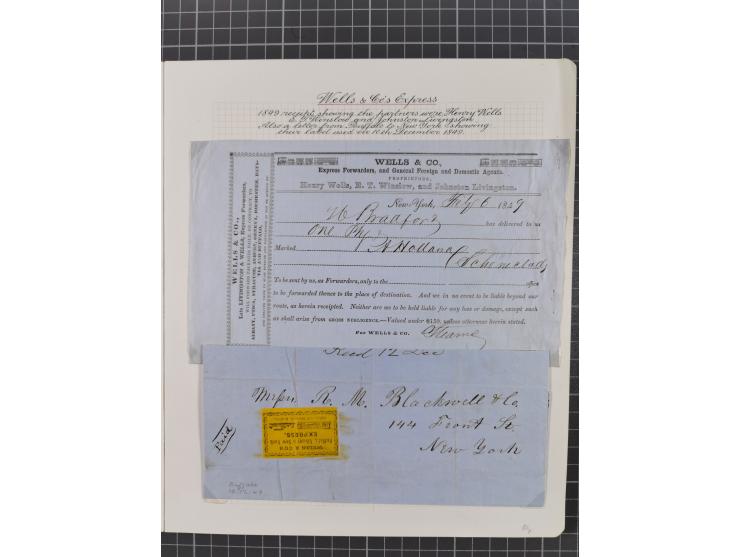 Wells & Co's Express
1849 receipt showing the partners were Henry Wells
E. T. Winslow and Johnston Livingston.
Also a letter from Buffalo to New York showing
their label used on 10th December 1849.
WELLS & CO.,
Express Forwarders, and General Foreign and Domestic Agents.
PROPRIETORS,
Henry Wells, E. T. Winslow, and Johnston Livingston.
New York, Feby 6 1849
Bradford
has delivered to us
One Pkg
Marked
A Holland
Schenectady
To be sent by us, as Forwarders, only to the
to be forwarded thence to the place of destination. And we in no event to be liable beyond our
route, as herein receipted. Neither are we to be held liable for any loss or damage, except such
as shall arise from GROSS NEGLIGENCE.—Valued under $150, unless otherwise herein stated.
For WELLS & CO.
WELLS & CO.,
Late LIVINGSTON & WELLS, Express Forwarders,
Recd 12 Dec
Messrs R. M. Blackwell & Co
144 Front St.
New York
Paid
WELLS & CO'S
EXPRESS.
Buffalo